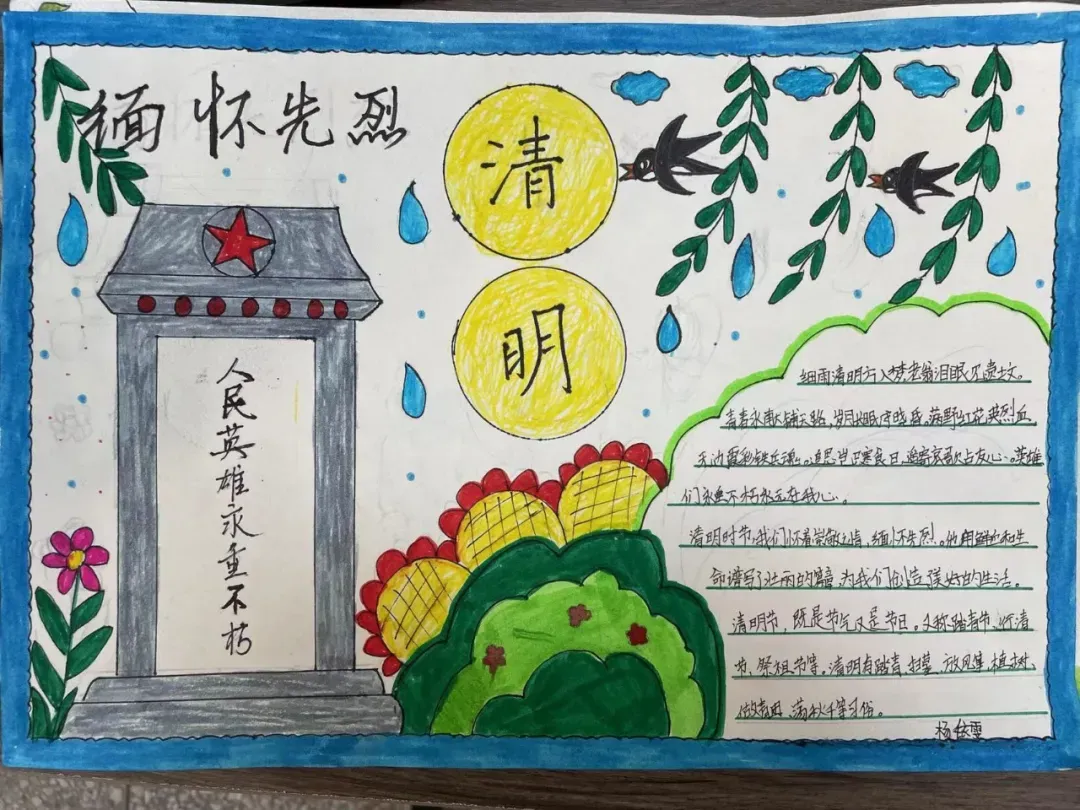 缅怀先烈
清
明
人民英雄永垂不朽
细雨清明行入梦老翁泪眼见遗文。
青春永献铺天路,岁月长眠守晓昏,满野红花英烈血
天边霞彩铁兵魂。追思岂只寒食日,遥寄哀歌占友心。英雄
们永垂不朽永远在我心。
清明时节,我们怀着崇敬之情,缅怀先烈。他用鲜血和生
命谱写了壮丽的篇章,为我们创造了美好的生活。
清明节,既是节气又是节日。又称踏青节、行清
节、祭祖节等。清明有踏青、扫墓、放风筝、植树
做青团、荡秋千等习俗。
杨 雯